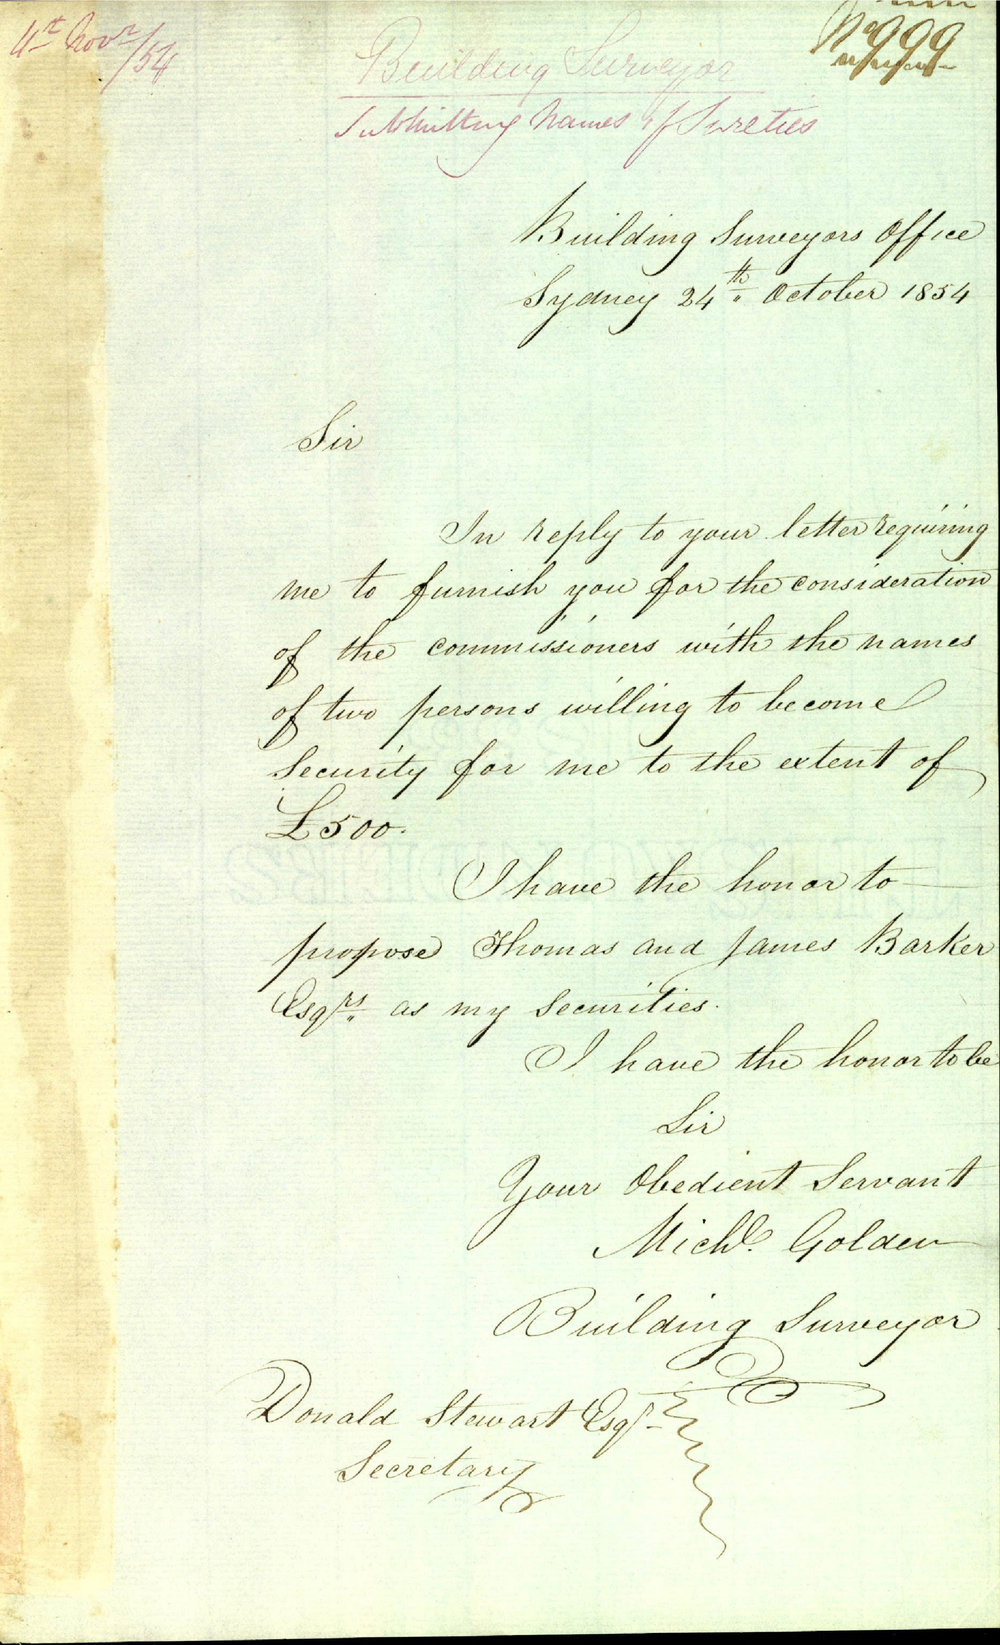 4th Novr/54
No 999
Building Surveyor
Submitting Names of Sureties
Building Surveyors Office
Sydney 24th October 1854
Sir
In reply to your letter requiring
me to furnish you for the consideration
of the commissioners with the names
of two persons willing to become
Security for me to the extent of
£500.
I have the honor to
propose Thomas and James Barker
Esqrs as my Securities.
I have the honor to be
Sir
Your Obedient Servant
Michl. Golden
Building Surveyor
Donald Stewart Esqr
Secretary